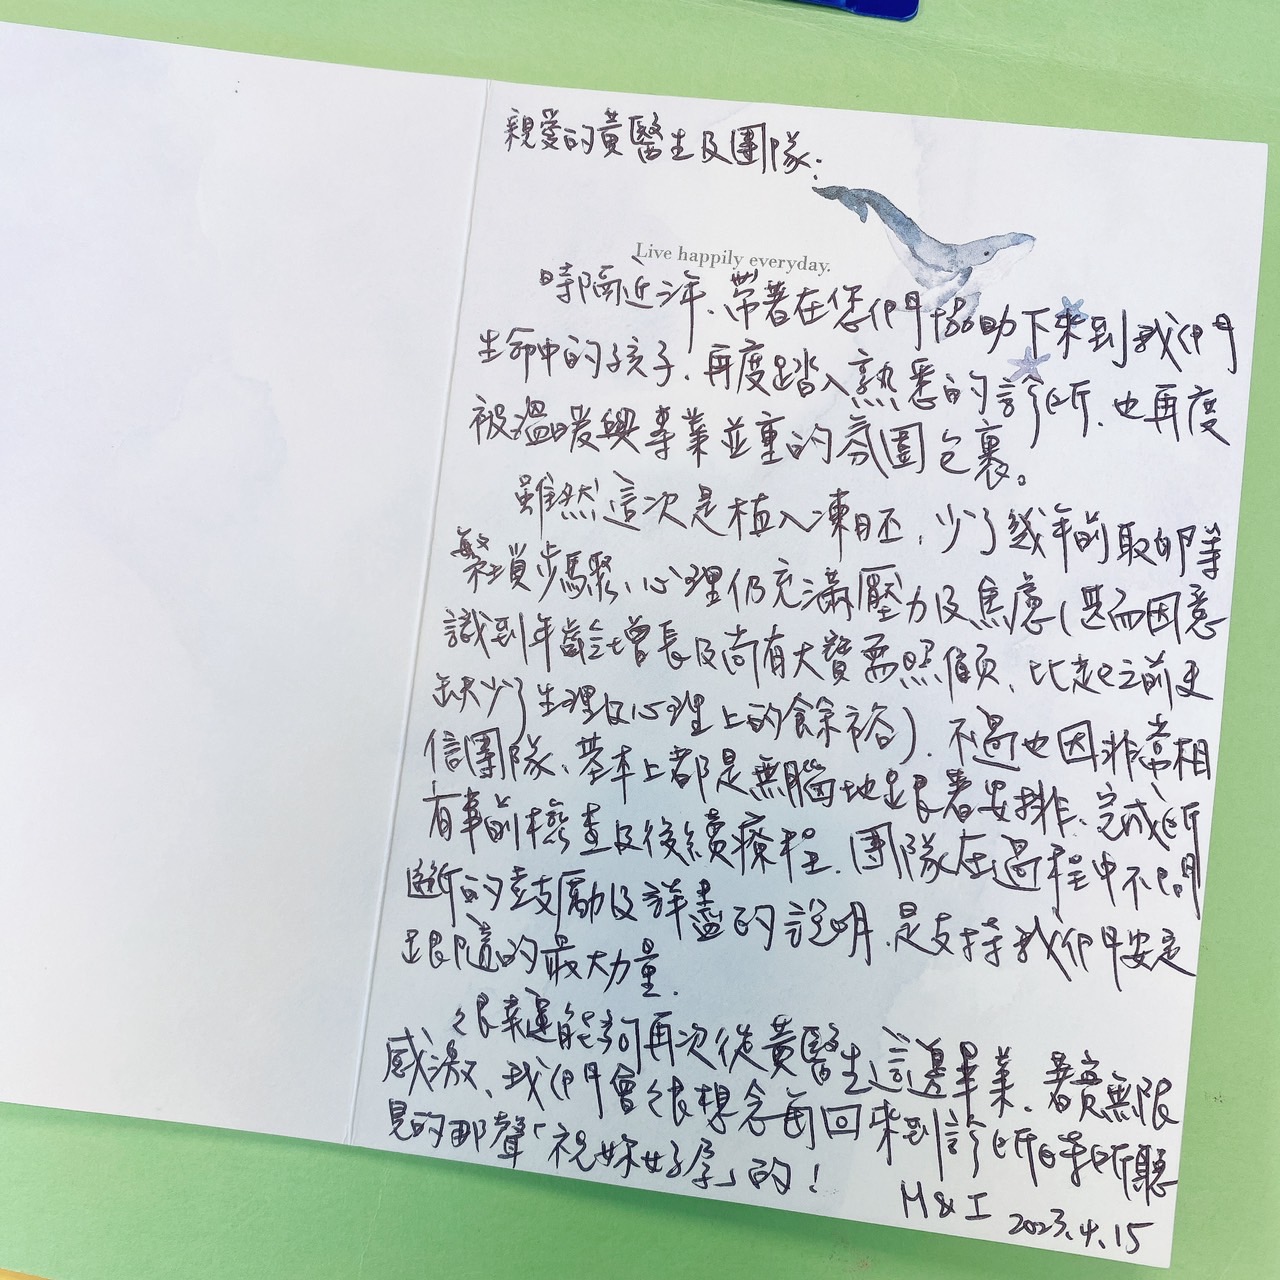 親愛的黃醫生及團隊：
Live happily everyday.
時隔近三年、帶著在您們協助下來到我們
生命中的孩子、再度踏入熟悉的診所、也再度
被溫暖與專業並重的氛圍包裹。
雖然這次是植入凍胚，少了幾年前取卵等
繁瑣步驟、心理仍充滿壓力及焦慮（甚而因意
識到年齡增長及尚有大寶需照顧、比起之前更
缺少了生理及心理上的餘裕）、不過也因非常相
信團隊、基本上都是無腦地跟著安排、完成所
有事前檢查及後續療程、團隊在過程中不間
斷的鼓勵及詳盡的說明、是支持我們安定
跟隨的最大力量、
很幸運能夠再次從黃醫生這邊畢業、著實無限
感激、我們會很想念每回來到診所時所聽
見的那聲「祝妳好孕」的！
M & I 2023.4.15